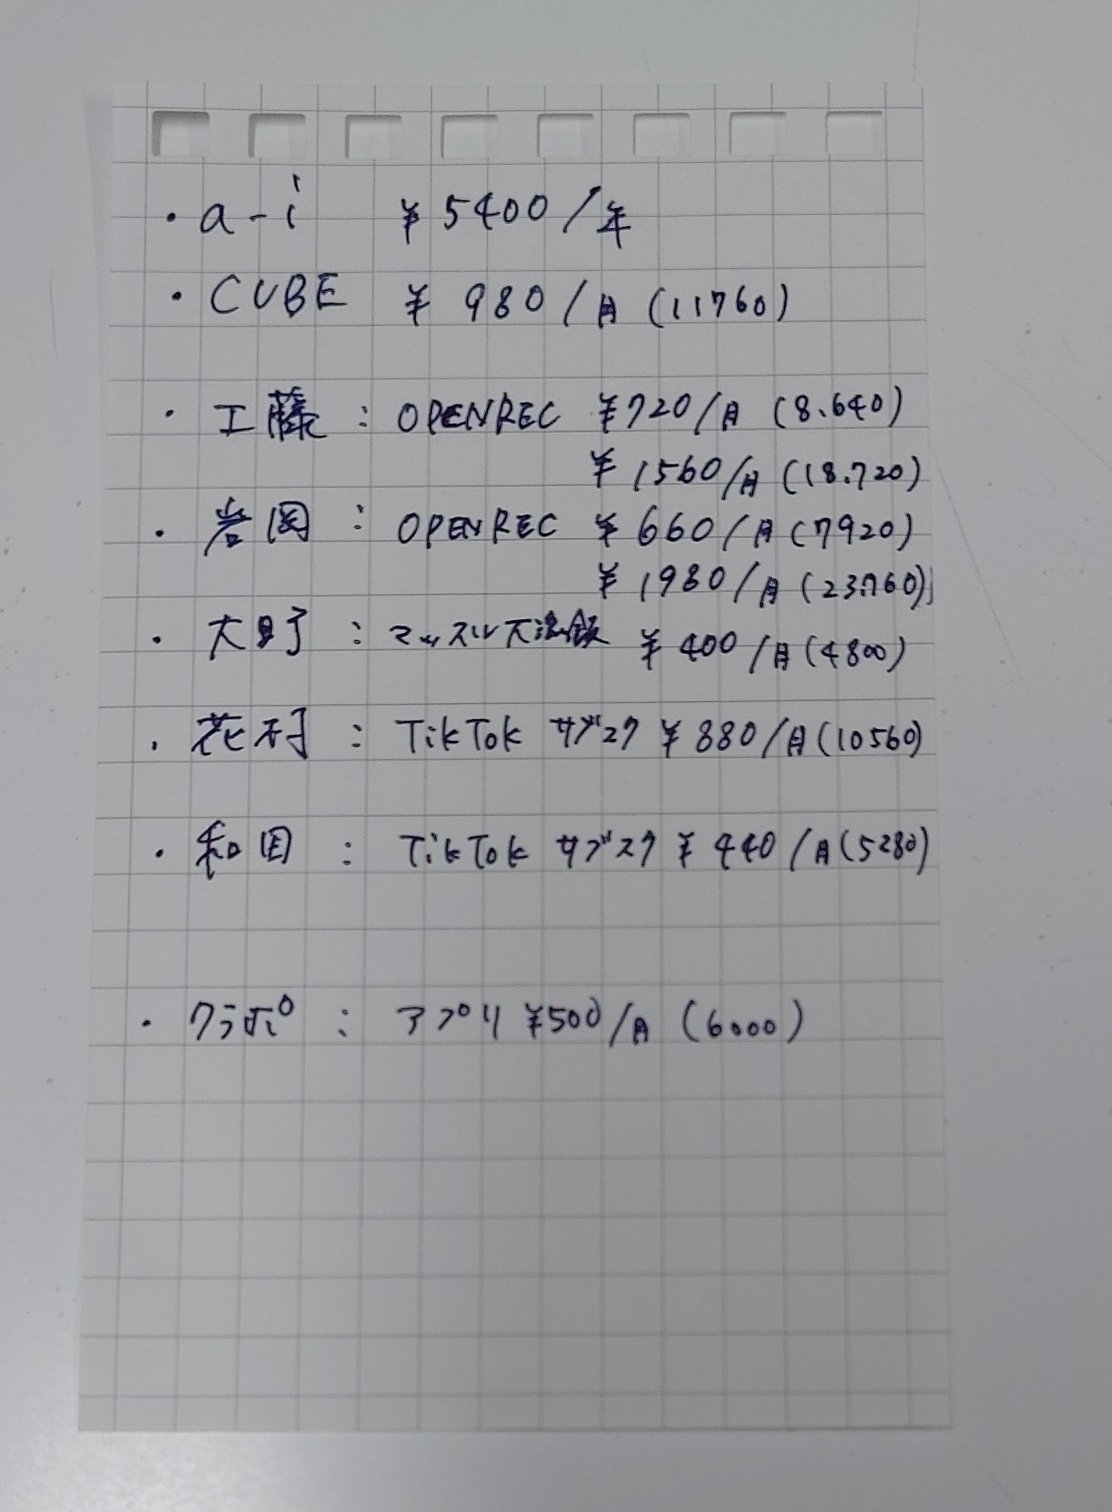 ・a-i ¥5400/年
・CUBE ¥980/月(11760)
・工藤：OPENREC ¥720/月(8.640)
¥1560/月(18.720)
・岩岡：OPENREC ¥660/月(7920)
¥1980/月(23.760)
・大野：マッスル ¥400/月(4800)
・花村：TikTok サブスク ¥880/月(10560)
・和田：TikTok サブスク ¥440/月(5280)
・クラポ：アプリ ¥500/月(6000)